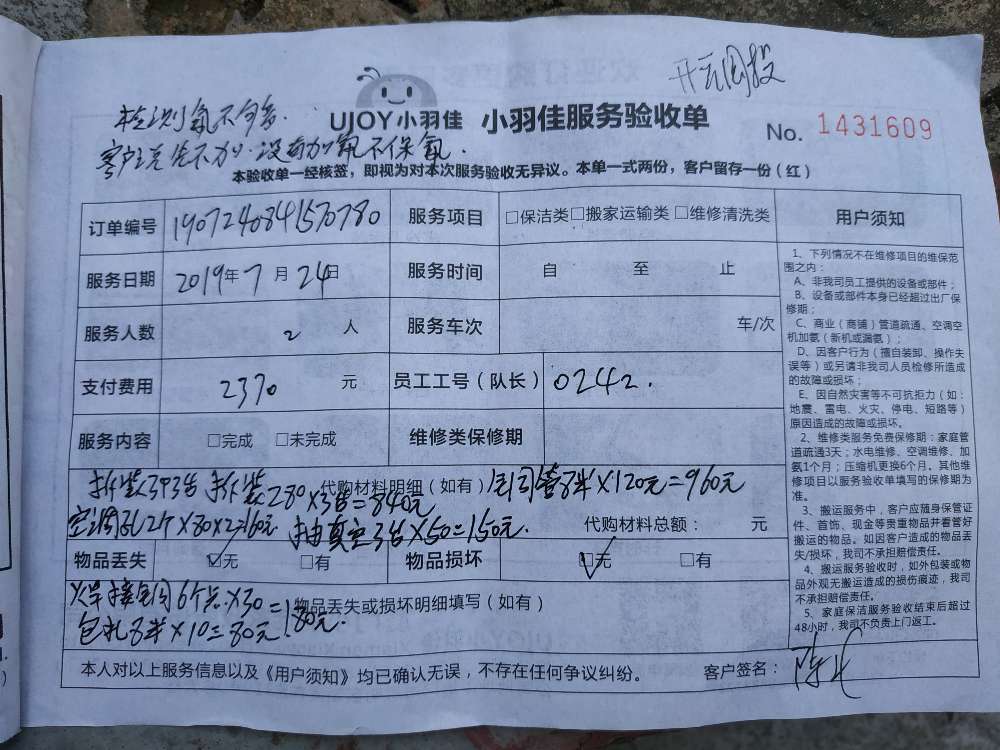 检测氟不够多.
客户说先不加.没有加氟不保氟.
UJOY小羽佳 小羽佳服务验收单
No. 1431609
本验收单一经核签，即视为对本次服务验收无异议。本单一式两份，客户留存一份（红）
订单编号 1907240841570780 服务项目 □保洁类□搬家运输类□维修清洗类 用户须知
服务日期 2019年7月24日 服务时间 自 至 止
服务人数 2 人 服务车次 车/次
支付费用 2370 元 员工工号（队长） 0242.
服务内容 □完成 □未完成 维修类保修期
拆装3P3台 拆装280×3台=840元 代购材料明细（如有） 铜管8米×120元=960元
空调孔2个×80×2=160元 抽真空3台×50=150元. 代购材料总额： 元
物品丢失 ☑无 □有 物品损坏 ☑无 □有
焊接铜6个点×30=180元. 物品丢失或损坏明细填写（如有）
包扎8米×10=80元
本人对以上服务信息以及《用户须知》均已确认无误，不存在任何争议纠纷。 客户签名：
1、下列情况不在维修项目的维保范
围之内：
A、非我司员工提供的设备或部件；
B、设备或部件本身已经超过出厂保
修期；
C、商业（商铺）管道疏通、空调空
机加氨（新机或漏氨）；
D、因客户行为（擅自装卸、操作失
误等）或另请非我司人员检修所造成
的故障或损坏；
E、因自然灾害等不可抗拒力（如：
地震、雷电、火灾、停电、短路等）
原因造成的故障或损坏。
2、维修类服务免费保修期：家庭管
道疏通3天；水电维修、空调维修、加
氨1个月；压缩机更换6个月。其他维
修项目以服务验收单填写的保修期为
准。
3、搬运服务中，客户应随身保管证
件、首饰、现金等贵重物品并看管好
搬运的物品。如因客户造成的物品丢
失/损坏，我司不承担赔偿责任。
4、搬运服务验收时，如外包装或物
品外观无搬运造成的损伤痕迹，我司
不承担赔偿责任。
5、家庭保洁服务验收结束后超过
48小时，我司不负责上门返工。